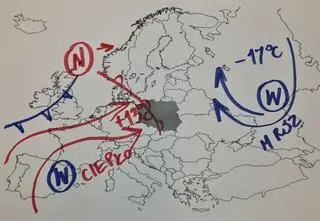 N
-17°C
+13°C
W
MRÓZ
W
CIEPŁO